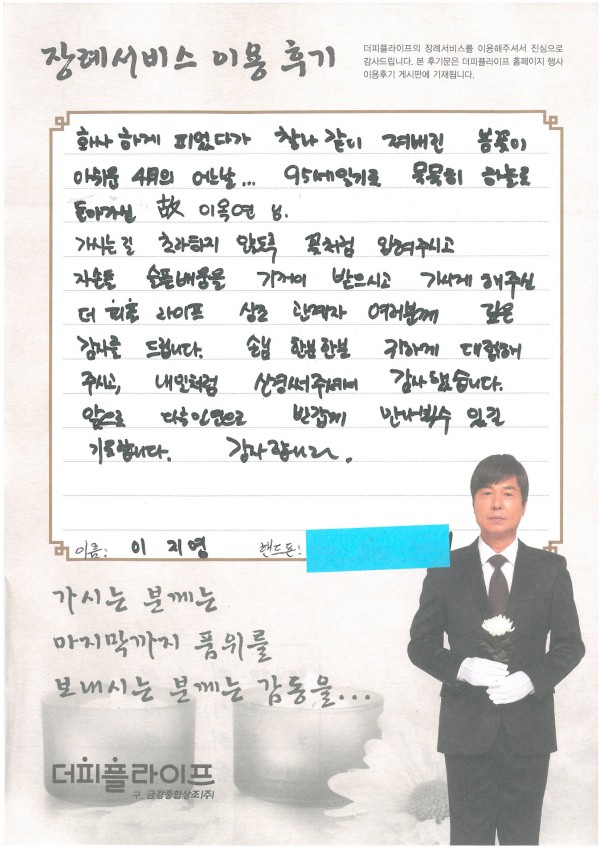 장례서비스 이용 후기
더피플라이프의 장례서비스를 이용해주셔서 진심으로
감사드립니다. 본 후기문은 더피플라이프 홈페이지 행사
이용후기 게시판에 기재됩니다.
화사하게 피었다가 찰나 같이 져버린 봄꽃이
아쉬운 4月의 어느날... 95세일기로 묵묵히 하늘로
돌아가신 故 이옥연 님.
가시는길 초라하지 않도록 꽃처럼 입혀주시고
자손들 슬픈배웅을 기꺼이 받으시고 가시게 해주신
더 피플 라이프 상조 관계자 여러분께 깊은
감사를 드립니다. 손님 한분한분 귀하게 대접해
주시고, 내일처럼 신경써주셔서 감사했습니다.
앞으로 다른인연으로 반갑게 만나뵐수 있길
기도합니다. 감사합니다.
이름: 이 지영 핸드폰:
가시는 분께는
마지막까지 품위를
보내시는 분께는 감동을...
더피플라이프
구. 금강종합상조(주)